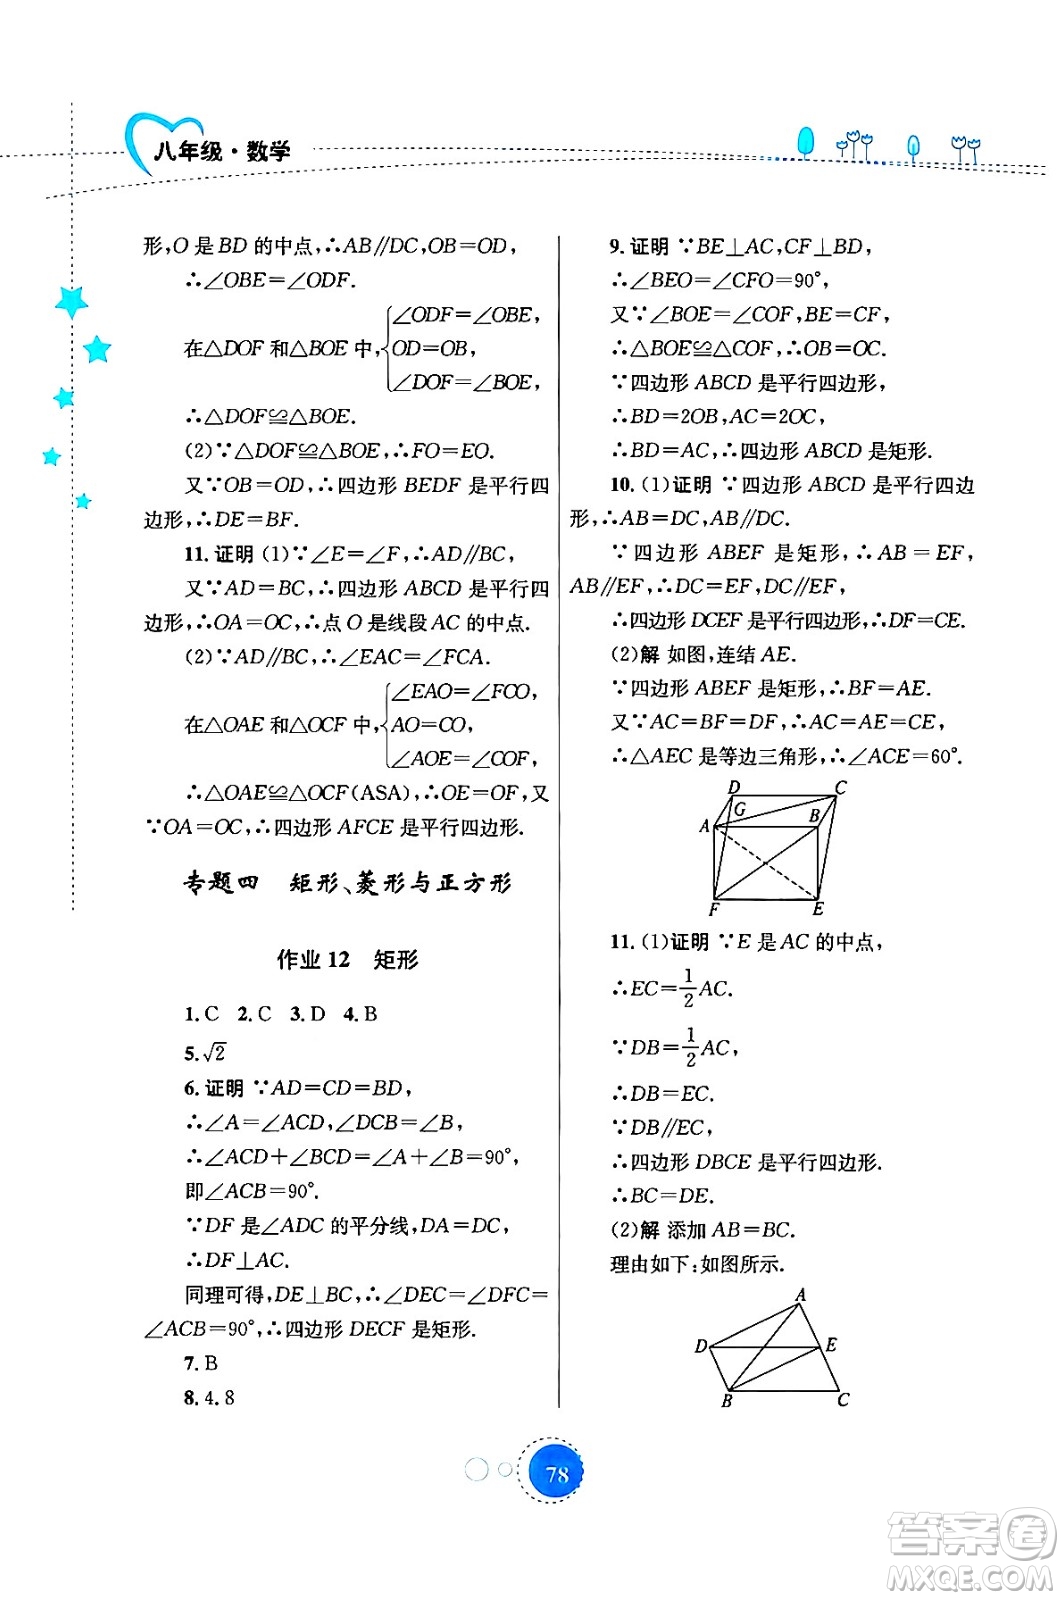 八年级·数学
形,O 是 BD 的中点,∴AB∥DC,OB=OD,
∴∠OBE=∠ODF.
在△DOF 和△BOE 中,{∠ODF=∠OBE,
OD=OB,
∠DOF=∠BOE,
∴△DOF≌△BOE.
(2)∵△DOF≌△BOE,∴FO=EO.
又∵OB=OD,∴四边形 BEDF 是平行四
边形,∴DE=BF.
11. 证明 (1)∵∠E=∠F,∴AD∥BC,
又∵AD=BC,∴四边形 ABCD 是平行四
边形,∴OA=OC,∴点 O 是线段 AC 的中点.
(2)∵AD∥BC,∴∠EAC=∠FCA.
在△OAE 和△OCF 中,{∠EAO=∠FCO,
AO=CO,
∠AOE=∠COF,
∴△OAE≌△OCF(ASA),∴OE=OF,又
∵OA=OC,∴四边形 AFCE 是平行四边形.
专题四 矩形、菱形与正方形
作业 12 矩形
1. C 2. C 3. D 4. B
5. √2
6. 证明 ∵AD=CD=BD,
∴∠A=∠ACD,∠DCB=∠B,
∴∠ACD+∠BCD=∠A+∠B=90°,
即∠ACB=90°.
∵DF 是∠ADC 的平分线,DA=DC,
∴DF⊥AC.
同理可得,DE⊥BC,∴∠DEC=∠DFC=
∠ACB=90°,∴四边形 DECF 是矩形.
7. B
8. 4.8
9. 证明 ∵BE⊥AC,CF⊥BD,
∴∠BEO=∠CFO=90°,
又∵∠BOE=∠COF,BE=CF,
∴△BOE≌△COF,∴OB=OC.
∵四边形 ABCD 是平行四边形,
∴BD=2OB,AC=2OC,
∴BD=AC,∴四边形 ABCD 是矩形.
10. (1)证明 ∵四边形 ABCD 是平行四边
形,∴AB=DC,AB∥DC.
∵四边形 ABEF 是矩形,∴AB=EF,
AB∥EF,∴DC=EF,DC∥EF,
∴四边形 DCEF 是平行四边形,∴DF=CE.
(2)解 如图,连结 AE.
∵四边形 ABEF 是矩形,∴BF=AE.
又∵AC=BF=DF,∴AC=AE=CE,
∴△AEC 是等边三角形,∴∠ACE=60°.
D C
G
A B
F E
11. (1)证明 ∵E 是 AC 的中点,
∴EC=1/2AC.
∵DB=1/2AC,
∴DB=EC.
∵DB∥EC,
∴四边形 DBCE 是平行四边形.
∴BC=DE.
(2)解 添加 AB=BC.
理由如下:如图所示.
A
D E
B C
78
答案圈
MXQE.COM